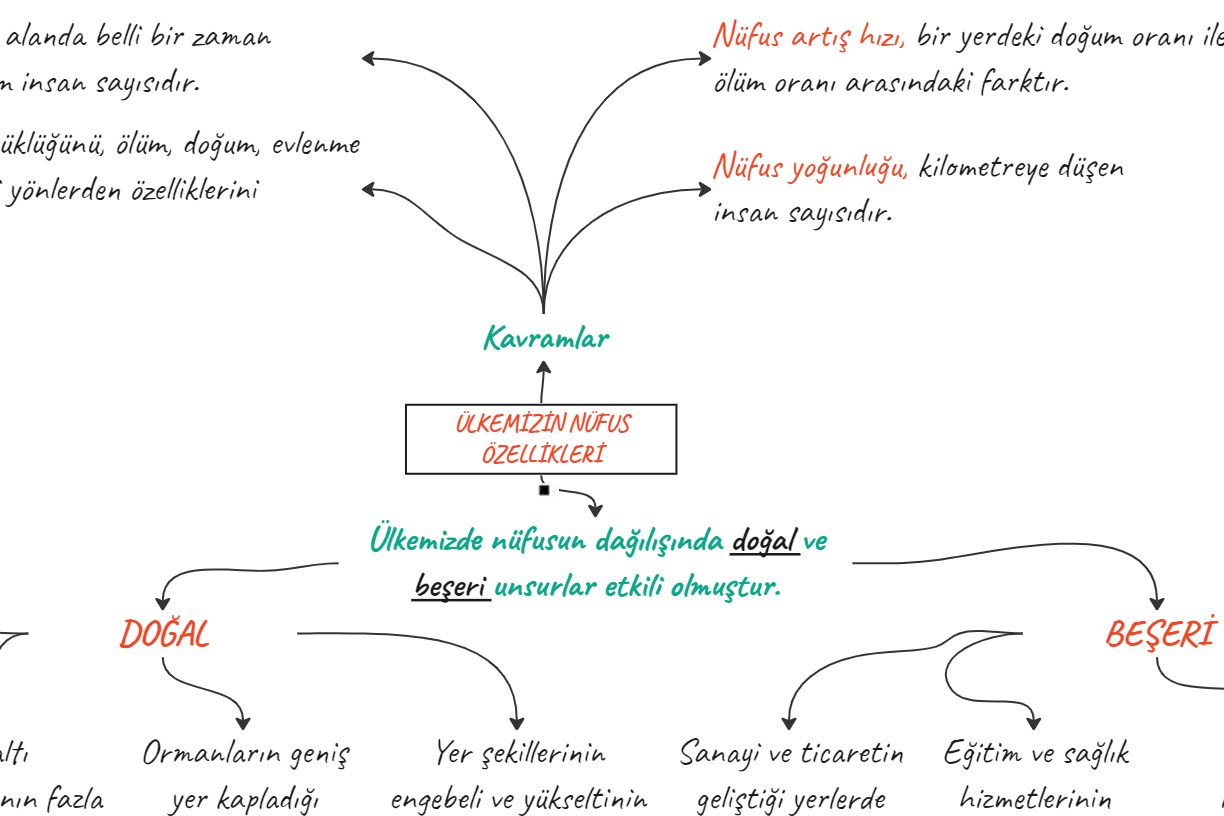 alanda belli bir zaman
insan sayısıdır.
ölüm, doğum, evlenme
yönlerden özelliklerini
Nüfus artış hızı, bir yerdeki doğum oranı ile
ölüm oranı arasındaki farktır.
Nüfus yoğunluğu, kilometreye düşen
insan sayısıdır.
Kavramlar
ÜLKEMİZİN NÜFUS
ÖZELLİKLERİ
Ülkemizde nüfusun dağılışında doğal ve
beşeri unsurlar etkili olmuştur.
DOĞAL
BEŞERİ
fazla
Ormanların geniş
yer kapladığı
Yer şekillerinin
engebeli ve yükseltinin
Sanayi ve ticaretin
geliştiği yerlerde
Eğitim ve sağlık
hizmetlerinin